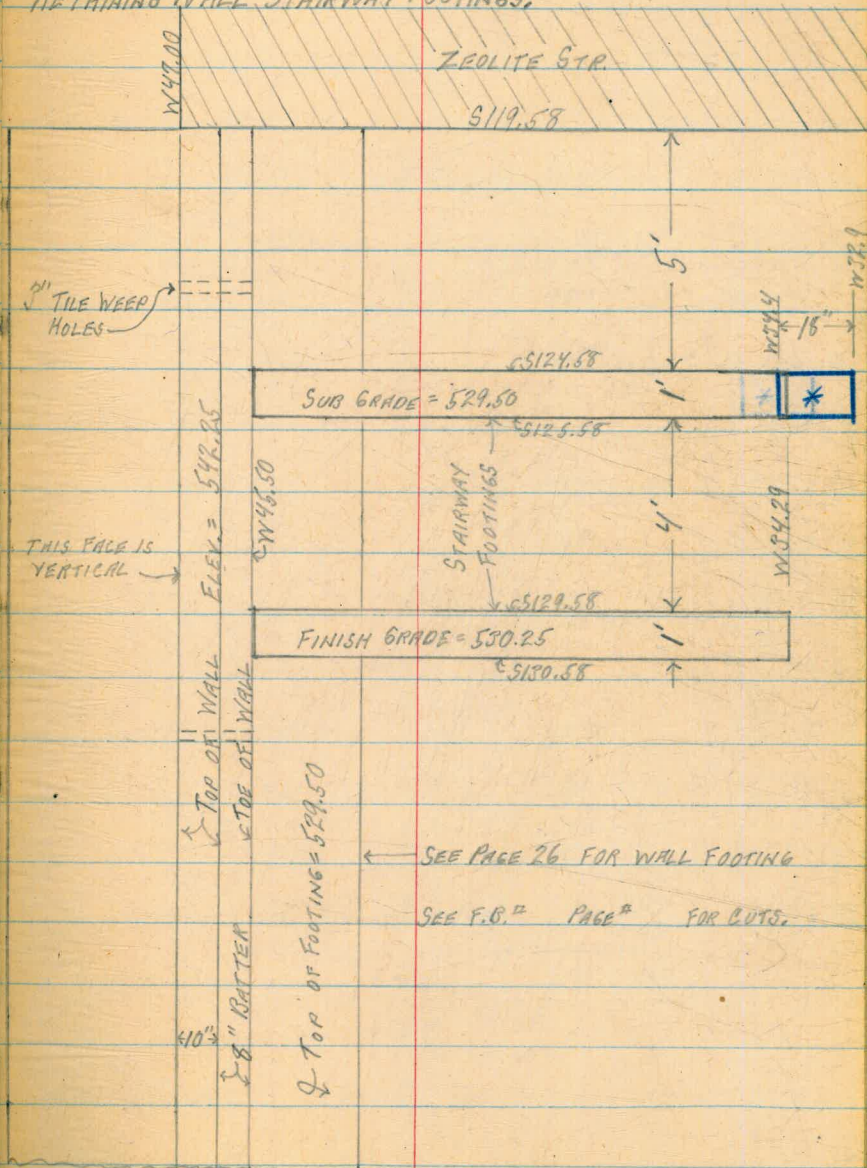 RETAINING WALL STAIRWAY FOOTINGS.
W47.00
ZEOLITE STR.
S119.58
5'
3" TILE WEEP
HOLES
W34.4
18"
W32.9
S124.58
SUB GRADE = 529.50
1'
*
*
S125.58
ELEV. = 542.25
W45.50
STAIRWAY
FOOTINGS
4'
W34.29
THIS FACE IS
VERTICAL
S129.58
FINISH GRADE = 530.25
1'
S130.58
TOP OF WALL
TOE OF WALL
TOP OF FOOTING = 529.50
SEE PAGE 26 FOR WALL FOOTING
SEE F.B.# PAGE# FOR CUTS.
8" BATTER
10"